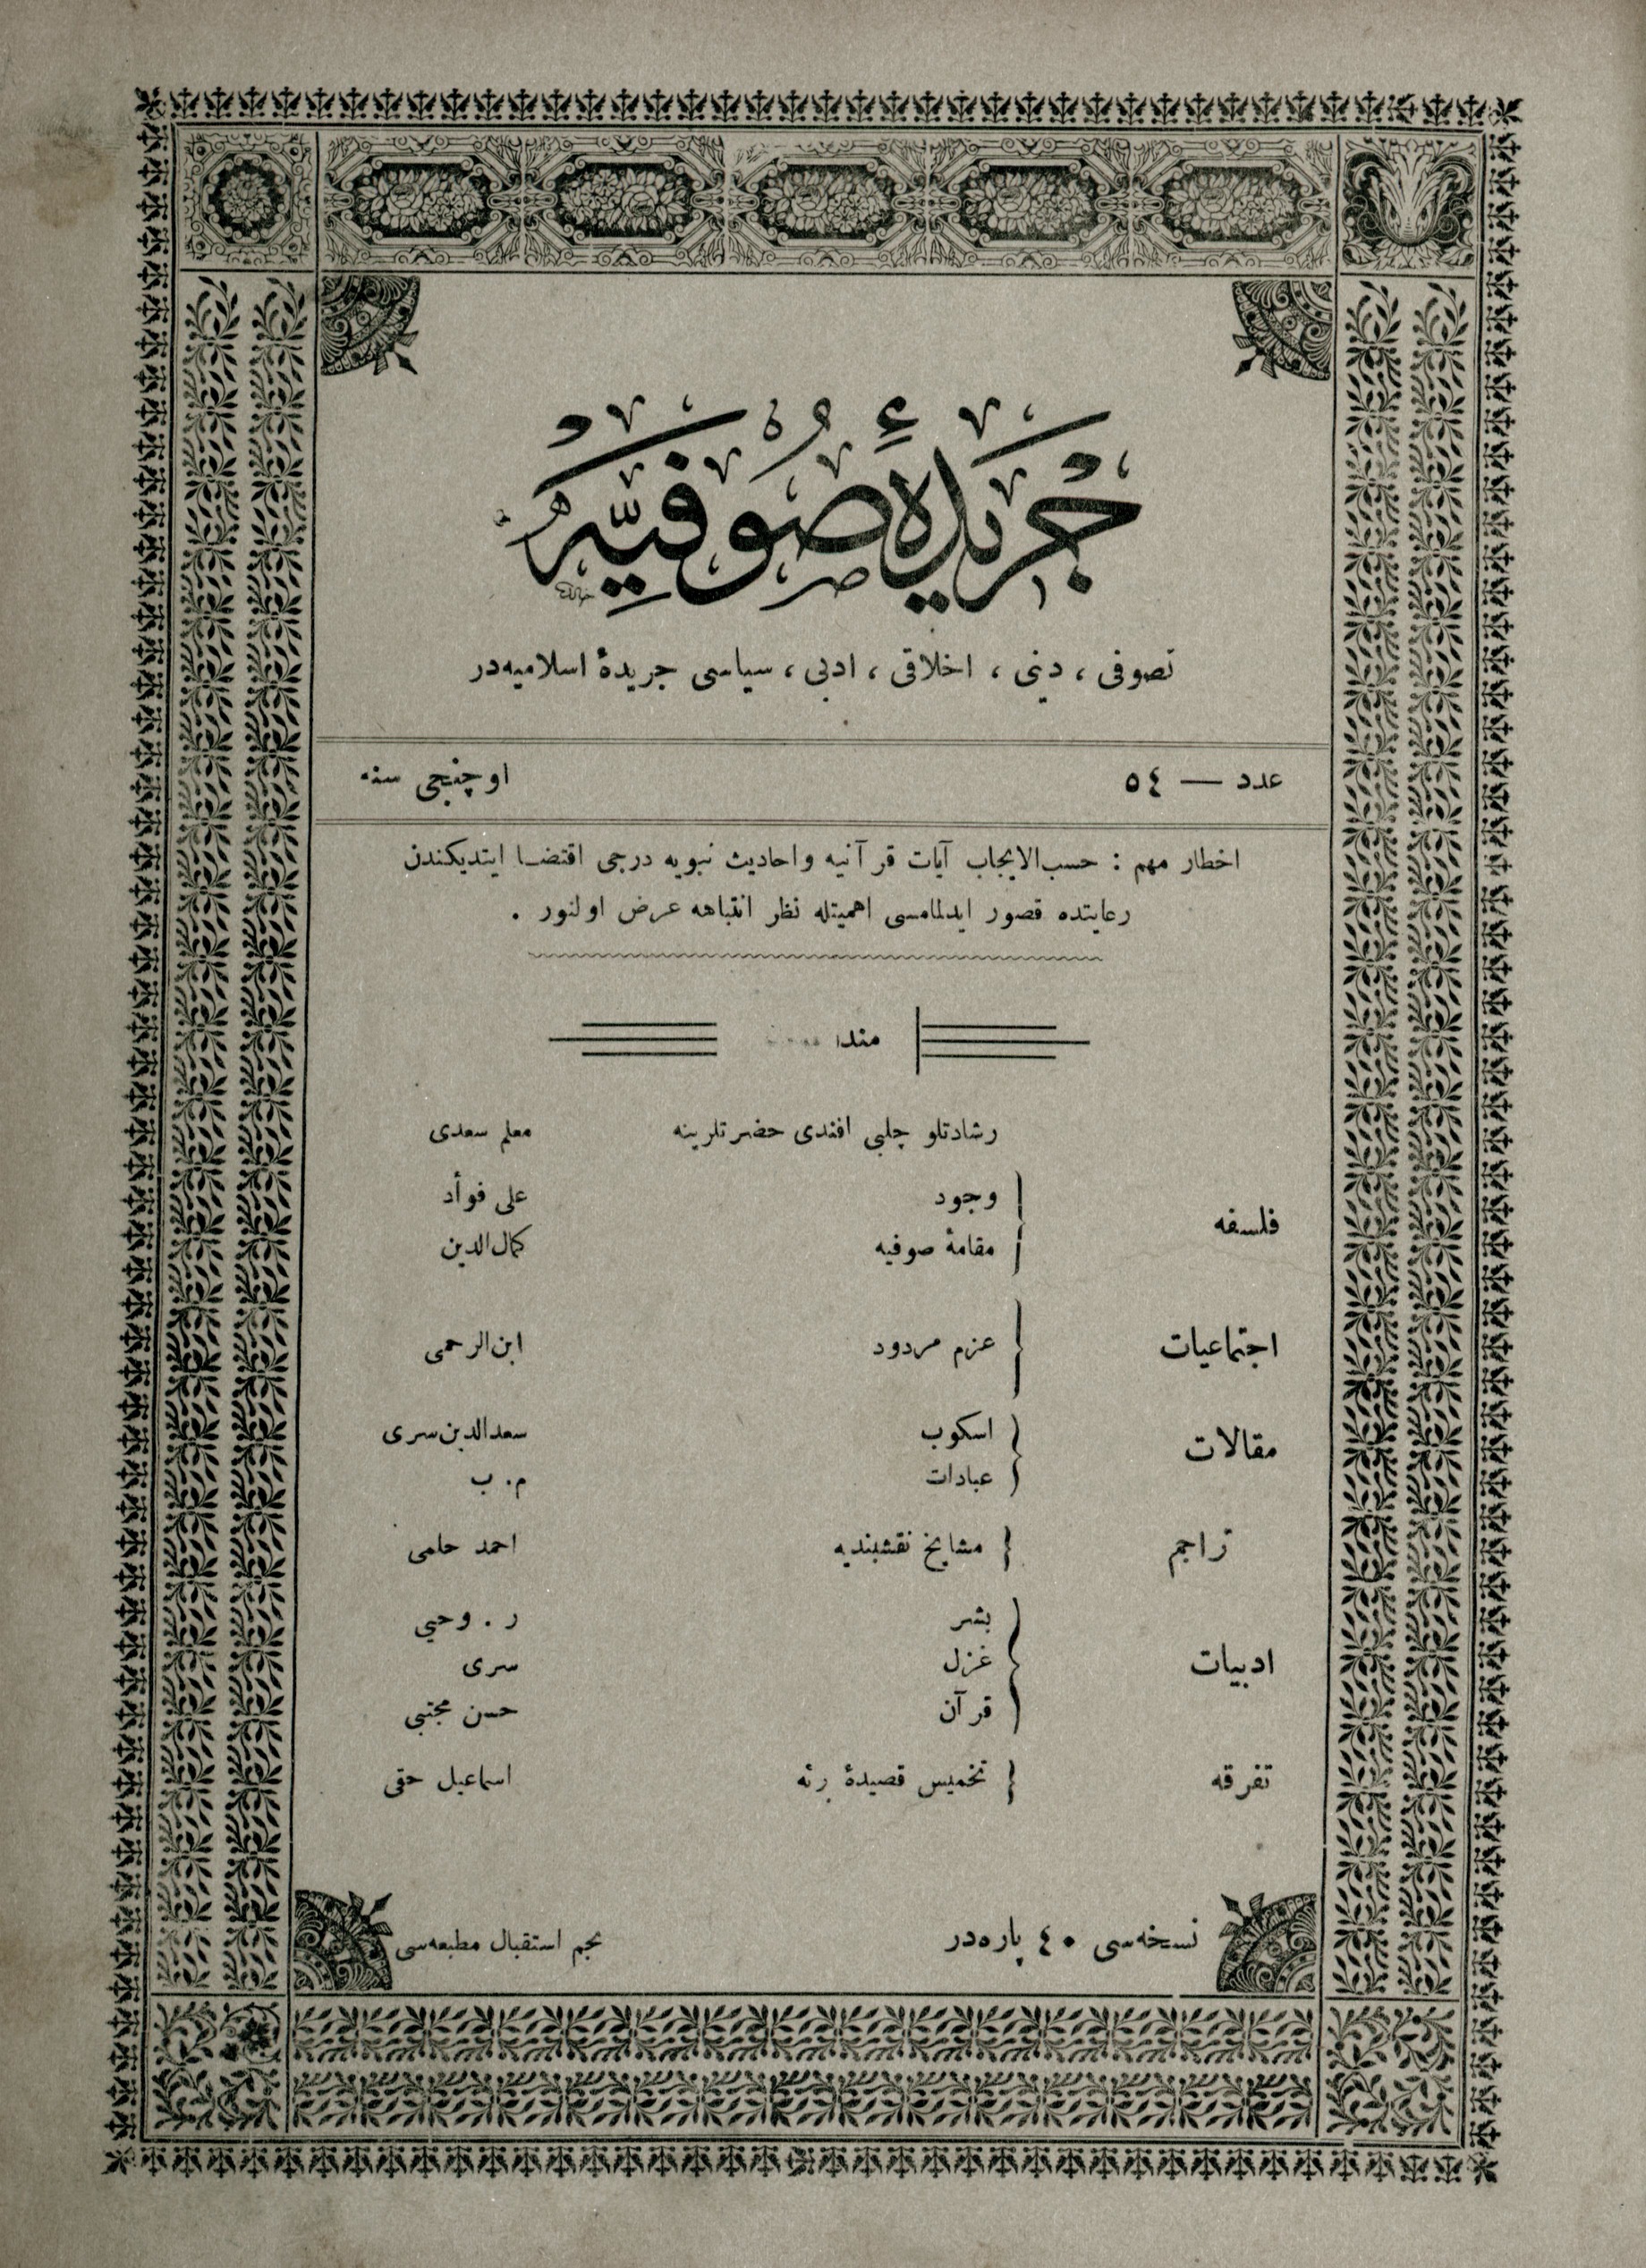 جريدۀ صوفيه
تصوفى ، دينى ، اخلاقى ، ادبى ، سياسى جريدۀ اسلاميه‌در
عدد — ٥٤
اوچنجى سنه
اخطار مهم : حسب‌الايجاب آيات قرآنيه واحاديث نبويه درجى اقتضا ايتديكندن
رعايتده قصور ايدلمامسى اهميتله نظر انتباهه عرض اولنور .
رشادتلو چلبى افندى حضرتلرينه معلم سعدى
فلسفه
وجود على فوأد
مقامۀ صوفيه كمال‌الدين
اجتماعيات عزم مردود ابن‌الرحمى
مقالات
اسكوب سعدالدين سرى
عبادات م. ب
تراجم مشايخ نقشبنديه احمد حلمى
ادبيات
بشر ر . وحيى
غزل سرى
قرآن حسن مجتبى
تفرقه تخميس قصيدۀ اسماعيل حقى
نسخه‌سى ٤٠ پاره‌در
نجم استقبال مطبعه‌سى